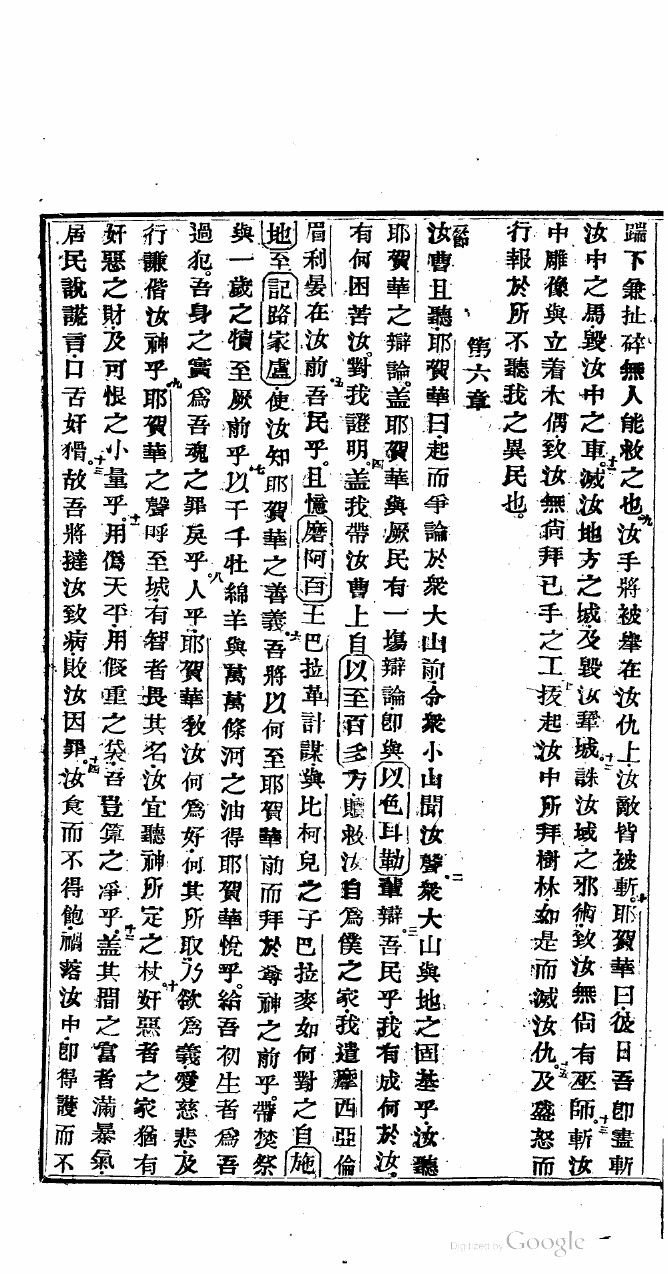 踹下兼扯碎無人能救之也九汝手將被舉在汝仇上汝敵皆被斬十耶賀華曰彼日吾卽盡斬
汝中之馬毀汝中之車十一滅汝地方之城及毀汝鞏城十二誅汝城之邪術致汝無尙有巫師十三斬汝
中雕像與立着木偶致汝無尙拜己手之工十四拔起汝中所拜樹林如是而滅汝仇十五及盛怒而
行報於所不聽我之異民也
第六章
一節汝曹且聽耶賀華曰起而爭論於衆大山前令衆小山聞汝聲二衆大山與地之固基乎汝聽
耶賀華之辯論蓋耶賀華與厥民有一塲辯論卽與以色耳勒輩辯三吾民乎我有成何於汝
有何困苦汝對我證明四蓋我帶汝曹上自以至百多方贖救汝自爲僕之家我遣摩西亞倫
眉利晏在汝前五吾民乎且憶磨阿百王巴拉革計謀與比柯兒之子巴拉麥如何對之自施
地至記路家盧使汝知耶賀華之善義六吾將以何至耶賀華前而拜於尊神之前乎帶焚祭
與一歲之犢至厥前乎七以千千牡綿羊與萬萬條河之油得耶賀華悅乎給吾初生者爲吾
過犯吾身之實爲吾魂之罪戾乎八人乎耶賀華敎汝何爲好何其所取乃欲爲義愛慈悲及
行謙偕汝神乎九耶賀華之聲呼至城有智者畏其名汝宜聽神所定之杖十奸惡者之家猶有
奸惡之財及可恨之小量乎十一用僞天平用假重之袋吾豈算之凈乎十二蓋其間之富者滿暴氣
居民說謊言口舌奸猾十三故吾將撻汝致病敗汝因罪十四汝食而不得飽禍落汝中卽得護而不
Digitized by Google